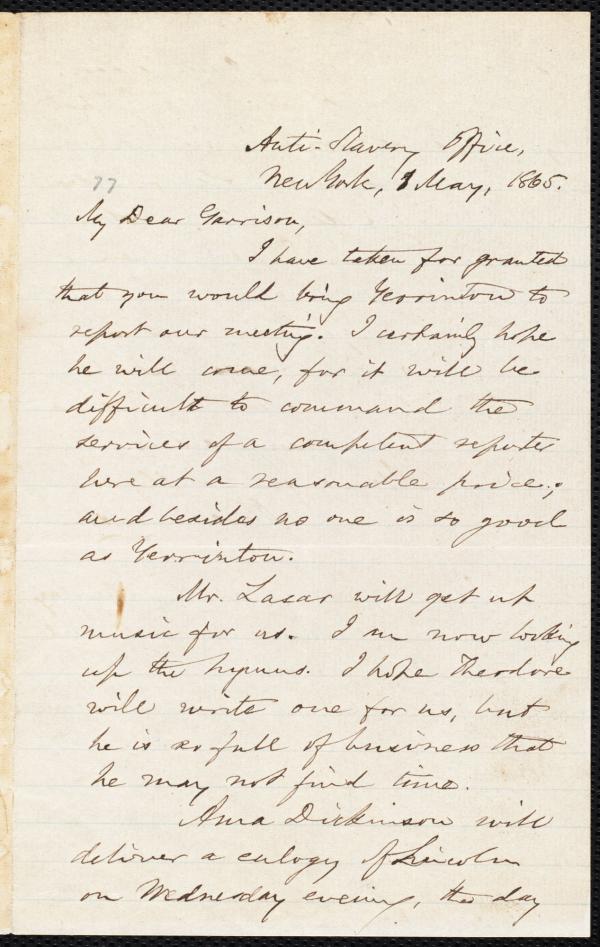 Anti-Slavery Office,
New York, 1 May, 1865.
77
My Dear Garrison,
I have taken for granted
that you would bring Yerrinton to
report our meeting. I certainly hope
he will come, for it will be
difficult to command the
services of a competent reporter
here at a reasonable price;
and besides no one is so good
as Yerrinton.
Mr. Lasar will get up
music for us. I am now looking
up the hymns. I hope Theodore
will write one for us, but
he is so full of business that
he may not find time.
Anna Dickinson will
deliver a eulogy of Lincoln
on Wednesday evening, the day